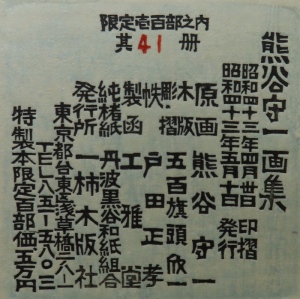 限定壱百部之内
其41册
熊谷守一画集
昭和四十三年四月廿日 印摺
昭和四十三年五月廿日 発行
原画 熊谷守一
木版彫摺 五百旗頭欣一
帙 戸田正孝
製函 工雅堂
純楮紙 丹波黒谷和紙組合
発行所 一柿木版社
東京都台東区浅草橋二ノ六ノ一
TEL八五一ー五八〇三
特製本限定百部価五万円